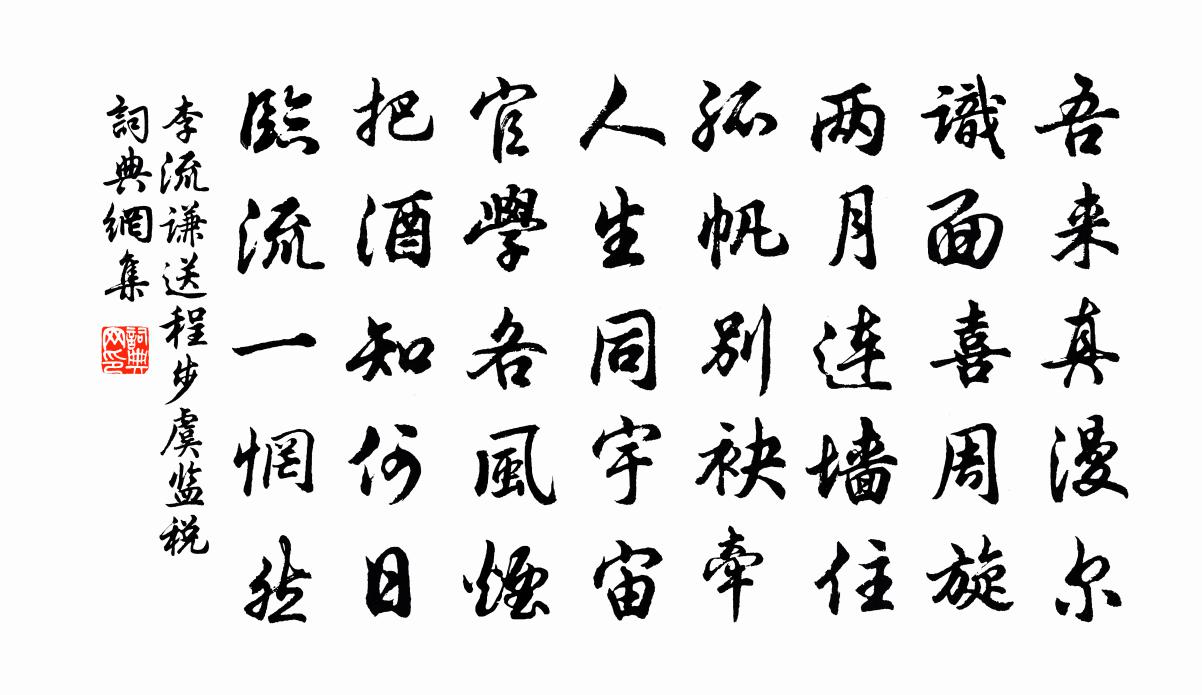 吾来真漫尔
識面喜周旋
两月连墙住
孤帆别袂牵
人生同宇宙
官學各風煙
把酒知何日
臨流一惘然
李流谦送程步虞监税
詞典網集
詞典网印